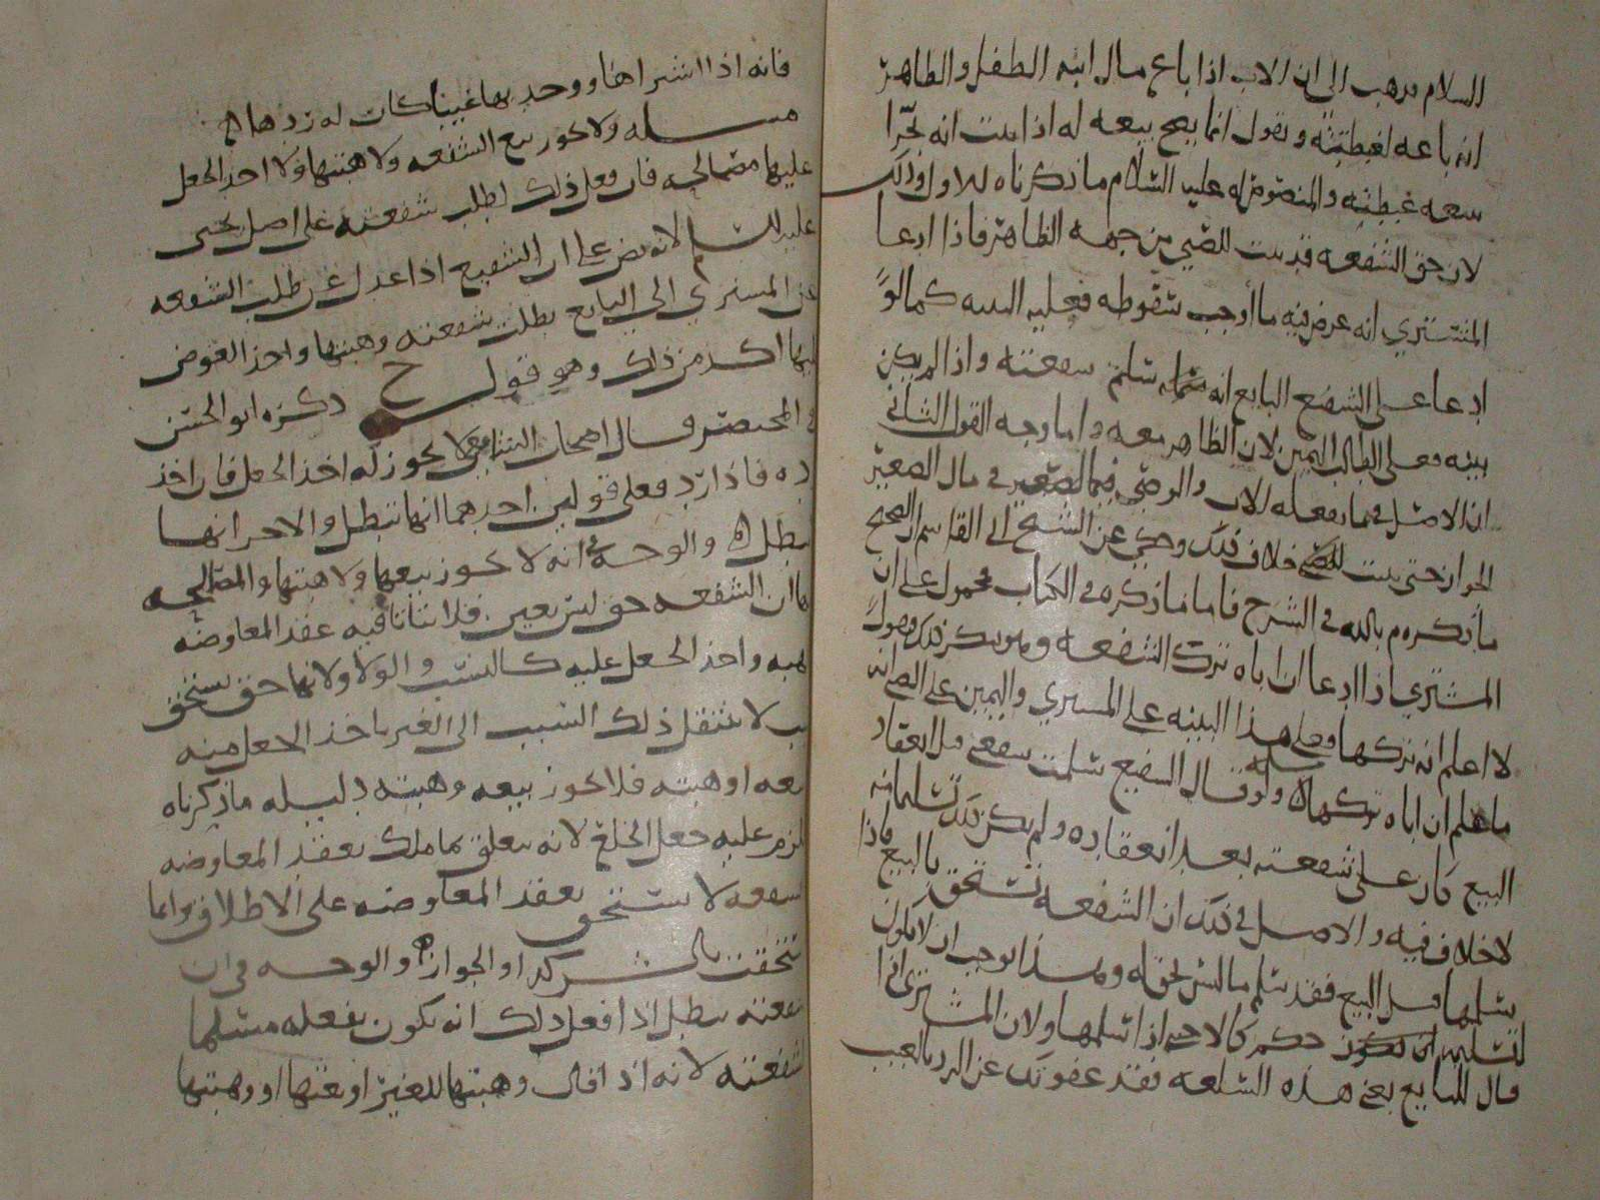 السلام مذهب الى ان الاب اذا باع مال ابنه الطفل والظاهر
انه باعه لغبطته ويقول انما يصح بيعه له اذا ثبت انه تحرا
بيعه غبطته والمنصوص له عليه السلام ما ذكرناه للاول وذلك
لان حق الشفعه قد ثبت للصبي من جهه الظاهر فاذا ادعا
المشتري انه عرض فيه ما أوجب سقوطه فعليه البينه كما لوً
ادعا على الشفيع البايع انه سلم شفعته واذا لم يكن
بينه فعلى الطالب اليمين لان الظاهر معه واما وجه القول الثاني
ان الاصل فيما يفعله الاب والوصي فيما للصغير في مال الصغير
الجواز حتى يثبت خلاف ذلك وحكي عن الشيخ ابي القاسم ان الصحيح
ما ذكره م بالله في الشرح فاما ما ذكره في الكتاب محمول على ان
المشتري اذا ادعا ان اباه ترك الشفعه وهو ينكر ذلك ويقول
لا اعلم انه تركها فعلى هذا البينه على المشتري واليمين على الصبي انه
ما يعلم ان اباه تركها ه مسله ولو قال الشفيع سلمت شفعتي قبل انعقاد
البيع كان على شفعته بعد انعقاده ولم يكن ذلك تسليما منه
لا خلاف فيه والاصل في ذلك ان الشفعه تستحق بالبيع فاذا
سلمها قبل البيع فقد سلم ما ليس بحق له وهذا يوجب ان لا يكون
لتسليمه حكم كالاجنبي اذا سلمها ولان المشتري اذا
قال للبايع بعني هذه السلعه فقد عفوتك عن الرد بالعيب
فانه اذا اشتراها ووجد بها عيبا كان له ردها ه
مسله ولا يجوز بيع الشفعه ولا هبتها ولا اخذ الجعل
عليها مصالحه فان فعل ذلك بطلت شفعته على اصل يحيى
عليه السلم لانه نص على ان الشفيع اذا عدل عن طلب الشفعه
عن المشتري الى البايع بطلت شفعته وهبتها واخذ العوض
عليها اكد من ذلك وهو قول ح ذكره ابو الحسن
في المختصر وقال اصحاب الشافعي لا يجوز له اخذ الجعل فان اخذ
رده فاذا رد فعلى قولين احدهما انها تبطل والاخر انها
لا تبطل ه والوجه في انه لا يجوز بيعها ولا هبتها والمصالحه
ان الشفعه حق ليس بعين فلا يتاتا فيه عقد المعاوضه
والهبه واخذ الجعل عليه كالنسب والولا ولانها حق يستحق
بسبب لا ينتقل ذلك السبب الى الغير باخذ الجعل منه
بيعه او هبته فلا يجوز بيعه وهبته دليله ما ذكرناه
يلزم عليه جعل الخلع لانه يتعلق بما ملك بعقد المعاوضه
الشفعه لا تستحق بعقد المعاوضه على الاطلاق وانما
تستحقت بالشركه او الجوار ه والوجه في ان
شفعته تبطل اذا فعل ذلك انه يكون بفعله مسلما
لشفعته لانه اذا قال وهبتها للغير او بعتها او وهبتها